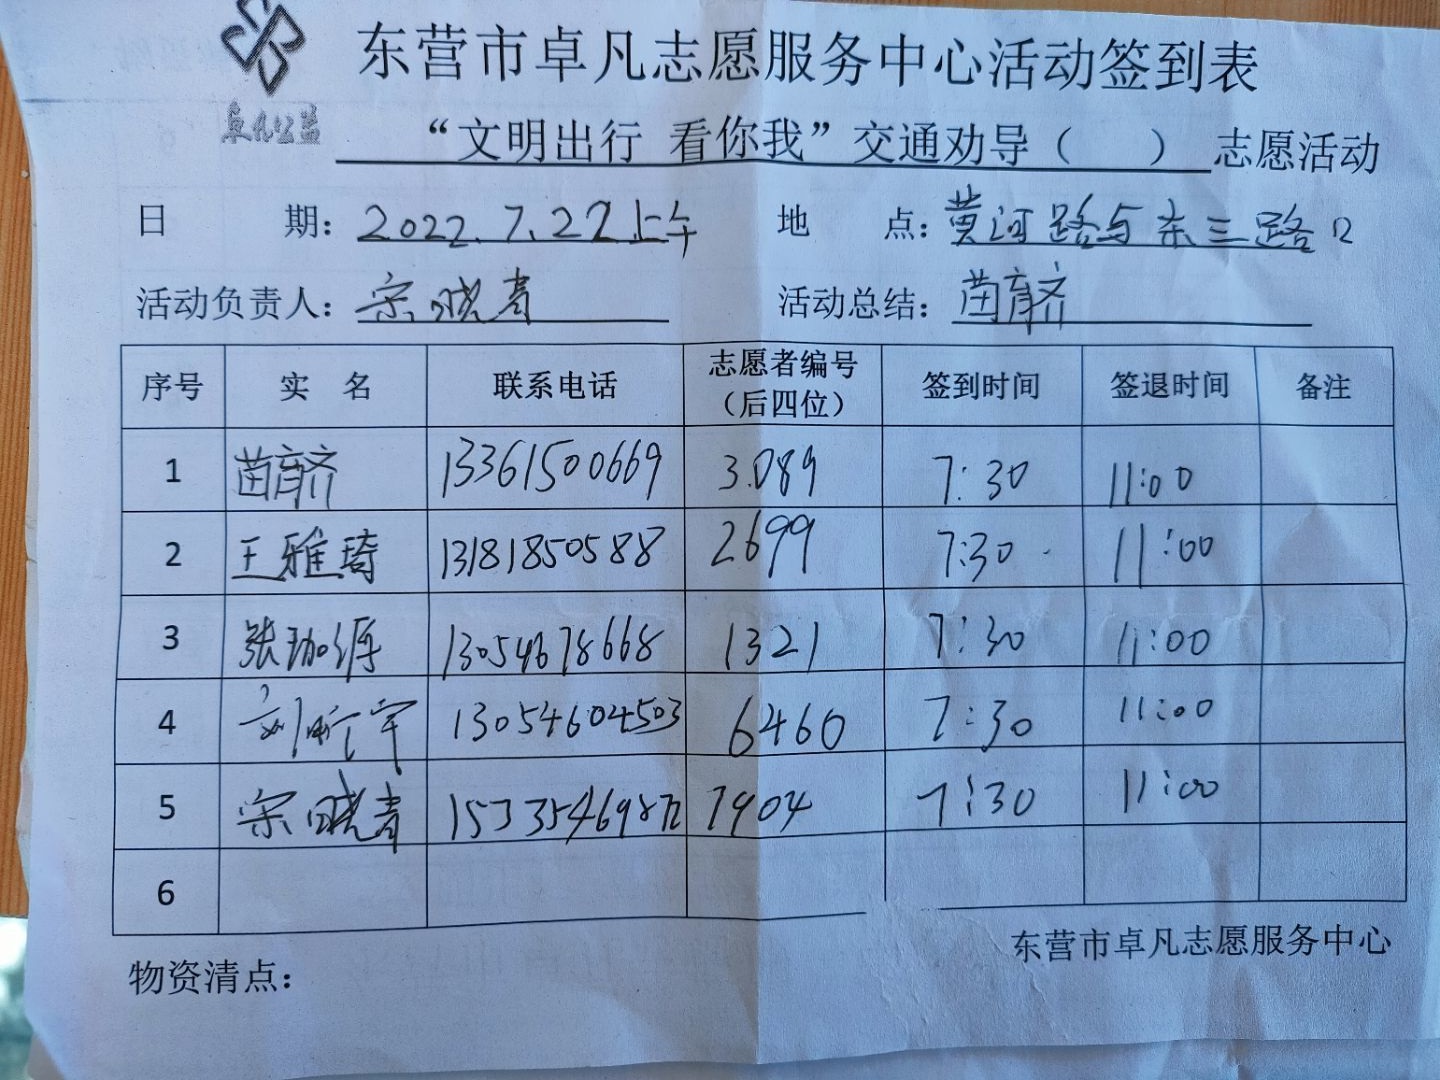 东营市卓凡志愿服务中心活动签到表
卓凡公益
“文明出行 看你我”交通劝导（ ）志愿活动
日 期：2022.7.27上午 地 点：黄河路与东三路口
活动负责人：宋晓青 活动总结：苗育齐
序号 实 名 联系电话 志愿者编号（后四位） 签到时间 签退时间 备注
1 苗育齐 13361500669 3089 7:30 11:00
2 王雅琦 13181850588 2699 7:30 11:00
3 张珈源 13054678668 1321 7:30 11:00
4 刘昕宇 13054604503 6460 7:30 11:00
5 宋晓青 7904 7:30 11:00
6
东营市卓凡志愿服务中心
物资清点：